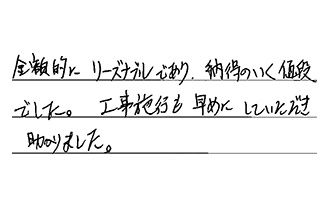 金額的に リーズナブルであり、納得のいく値段
でした。 工事施行も 早めに していただき
助かりました。